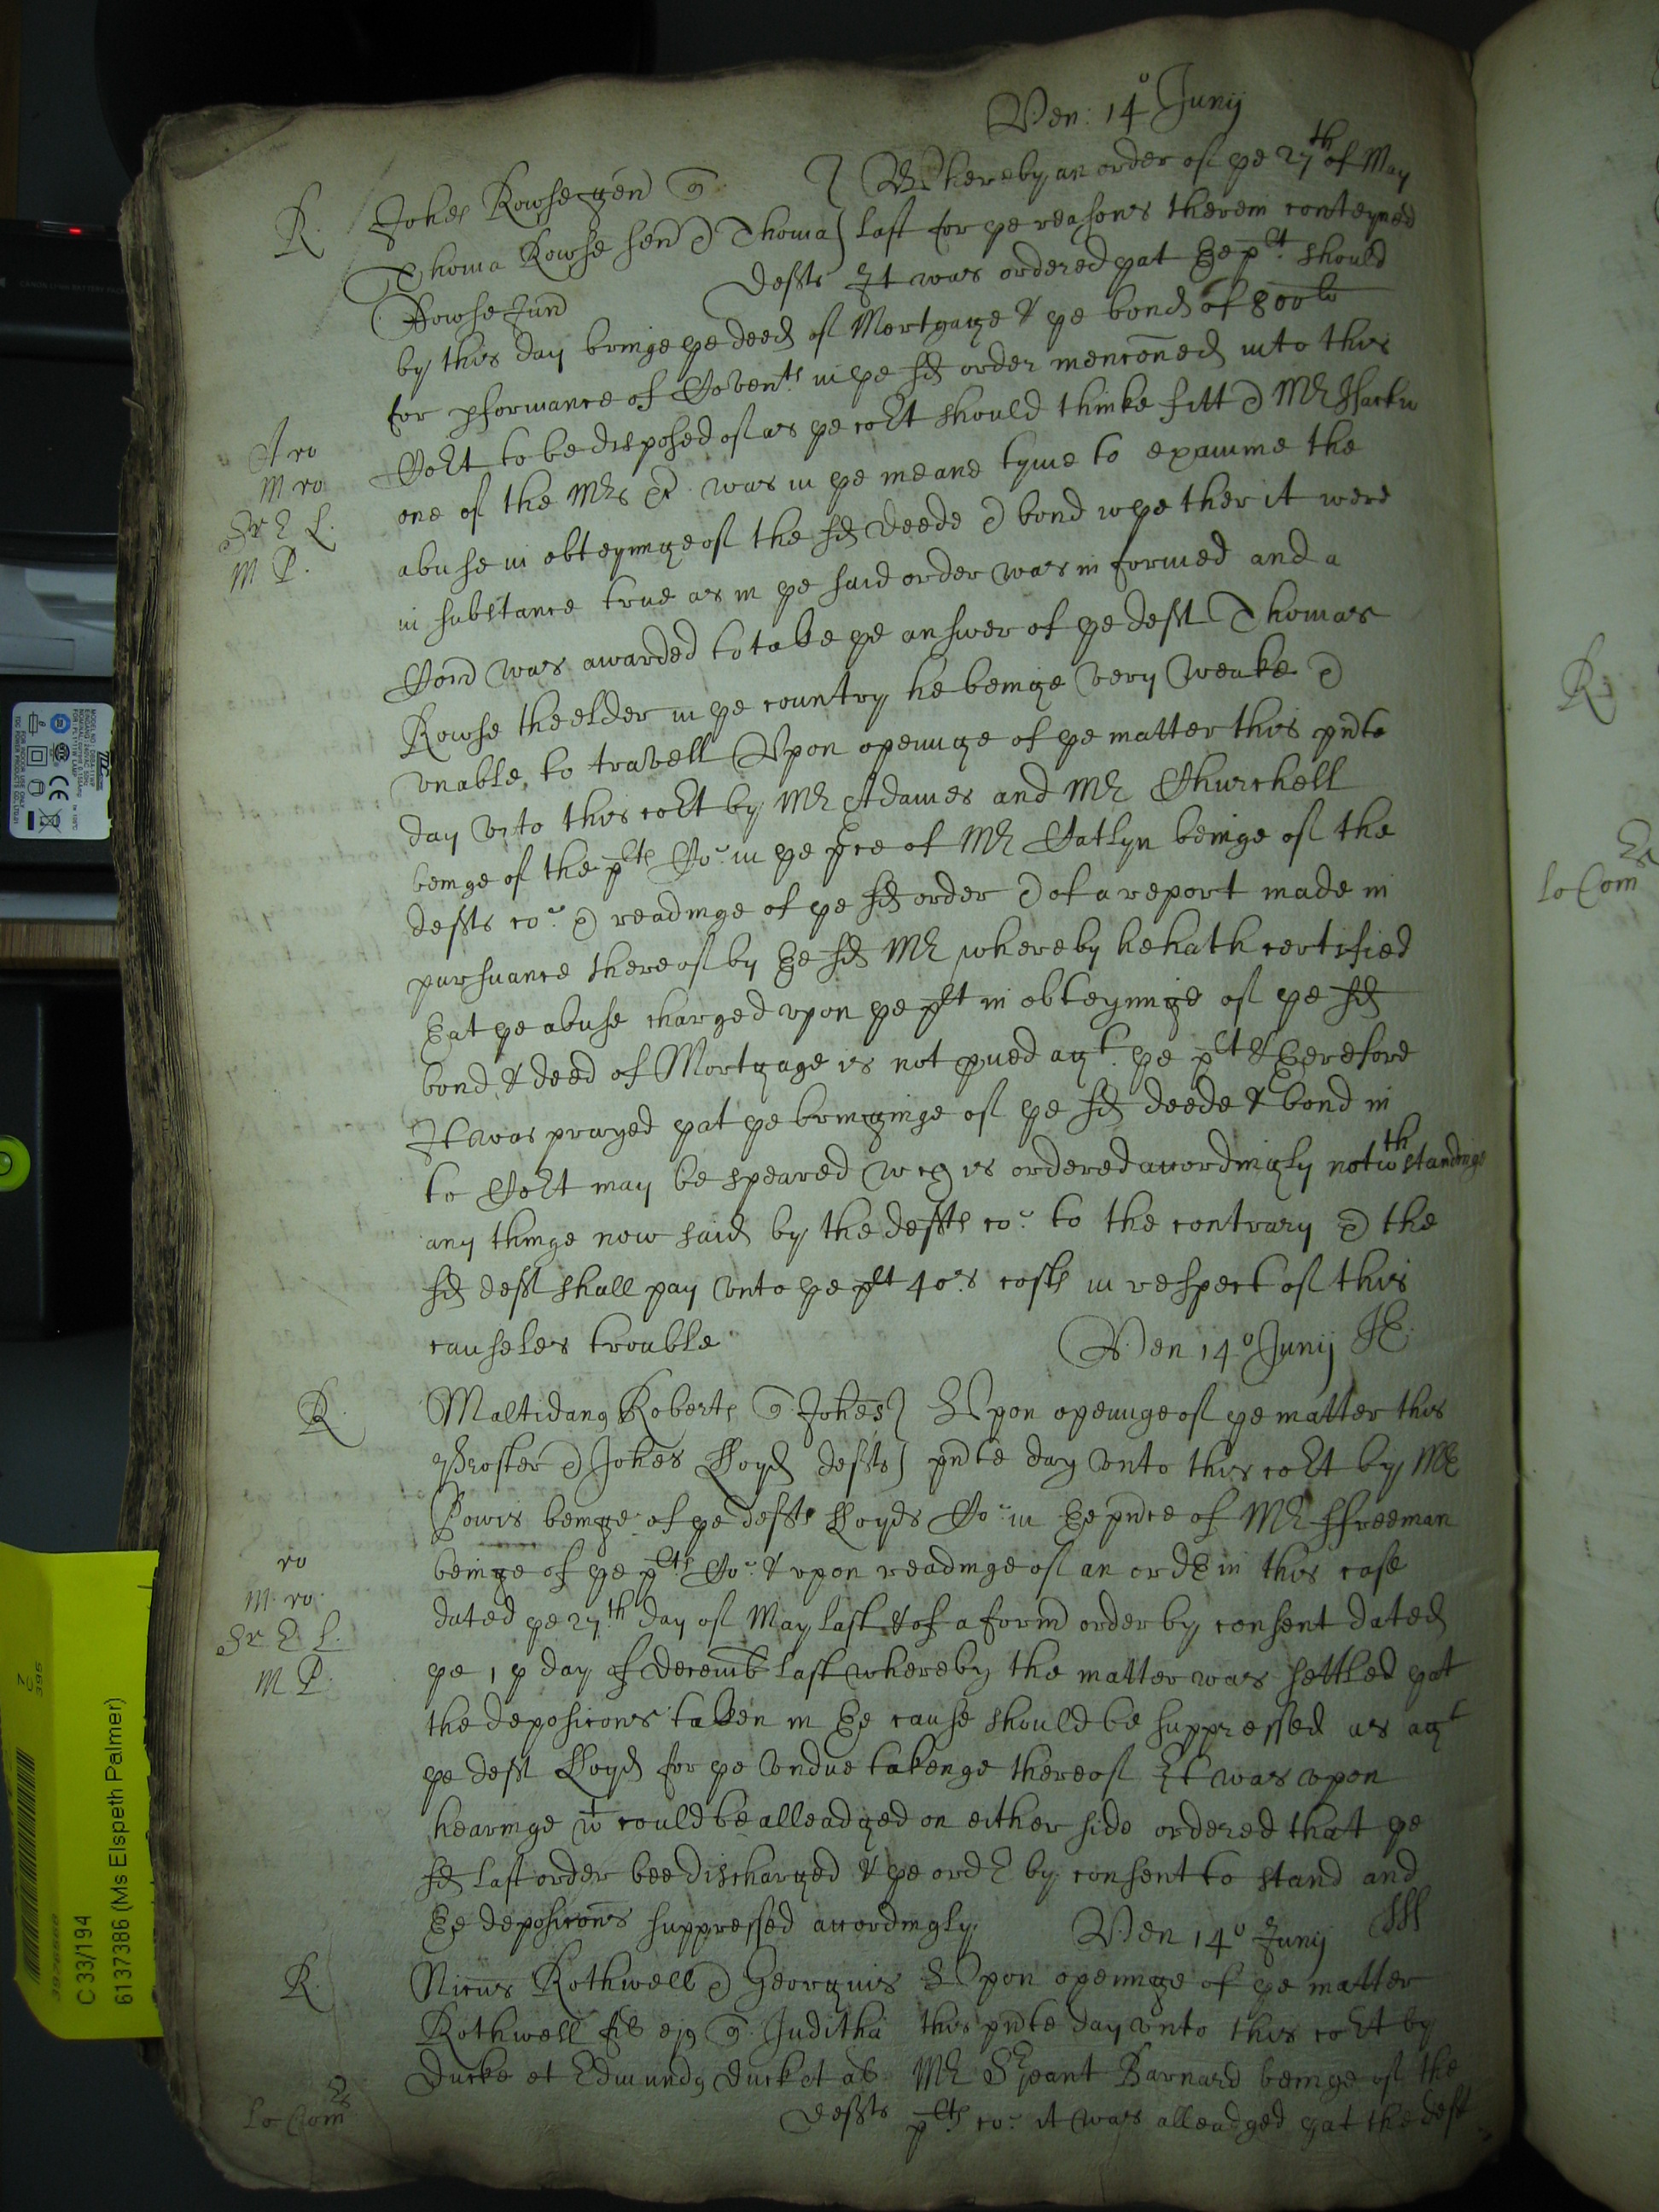 Ven: 14° Junij
R. Johes Rowse gen q. } Whereby an order of ye 27th of May
Thoma Rowse sen & Thoma } last for ye reasons therein conteyned
Rowse Jun defts It was ordered yat the plt should
by this day bringe ye deed of Mortgage & ye bond of 800li
for pformance of Covents in ye sd order mencõned into this
Cort to be disposed of as ye cort should thinke fitt & Mr
A ro
M ro
Sr E L.
M P.
one of the Mrs &c. was in ye meane tyme to examine the
abuse in obteyninge of the sd deede & bond whether it were
in substance true as in ye said order was informed and a
Com was awarded to take ye answer of ye deft Thomas
Rowse the elder in ye country he beinge very weake &
vnable to travell Vpon openinge of ye matter this pnte
day vnto this cort by Mr Adames and Mr Churchell
beinge of the plts Co: in ye pnce of Mr Catlyn beinge of the
defts co: & readinge of ye sd order & of a report made in
pursuance thereof by the sd Mr whereby he hath certified
that ye abuse charged vpon ye plt in obteyninge of ye sd
bond & deed of Mortgage is not pued agt. ye plt & therefore
It was prayed yat ye bringinge of ye sd deede & bond in
to Cort may be speared wch is ordered accordingly notwthstandinge
any thinge now said by the defts co: to the contrary & the
sd deft shall pay vnto ye plt 40s costs in respect of this
causeles trouble
Ven 14° Junij
R. Maltidang Roberts q. Johes } Vpon openinge of ye matter this
Proster & Johes Lloyd defts } pnte day vnto this cort by Mr
Powis beinge of ye defts Lloyds Co: in the pnce of Mr Ffreeman
beinge of ye plts Co: & vpon readinge of an order in this case
ro
M. ro.
Sr E. L.
M P.
dated ye 27th day of May last & of a form order by consent dated
ye day of decemb last whereby the matter was settled yat
the deposicons taken in the cause should be suppressed as agt
ye deft Lloyd for ye vndue takenge thereof It was vpon
hearinge wt could be alleadged on either side ordered that ye
sd last order bee discharged & ye order by consent to stand and
the deposicõns suppressed accordingly.
Ven 14° Junij
R. Nicus Rothwell & Georgius Vpon openinge of ye matter
Rothwell fil ejq q. Juditha this pnte day vnto this cort by
Ducke et Edmundq Ducket al Mr Sjeant Barnard beinge of the
defts plts co: it was alleadged yat the deft
Lo Com
R
Lo Com
C 33/194
6137386 (Ms Elspeth Palmer)